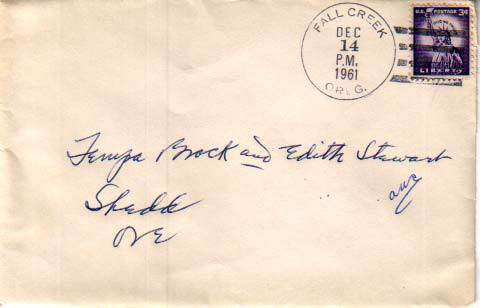 FALL CREEK
DEC
14
P.M.
1961
OREG.
U.S. POSTAGE 3¢
LIBERTY
Tempa Brock and Edith Stewart
Shedd
ORE